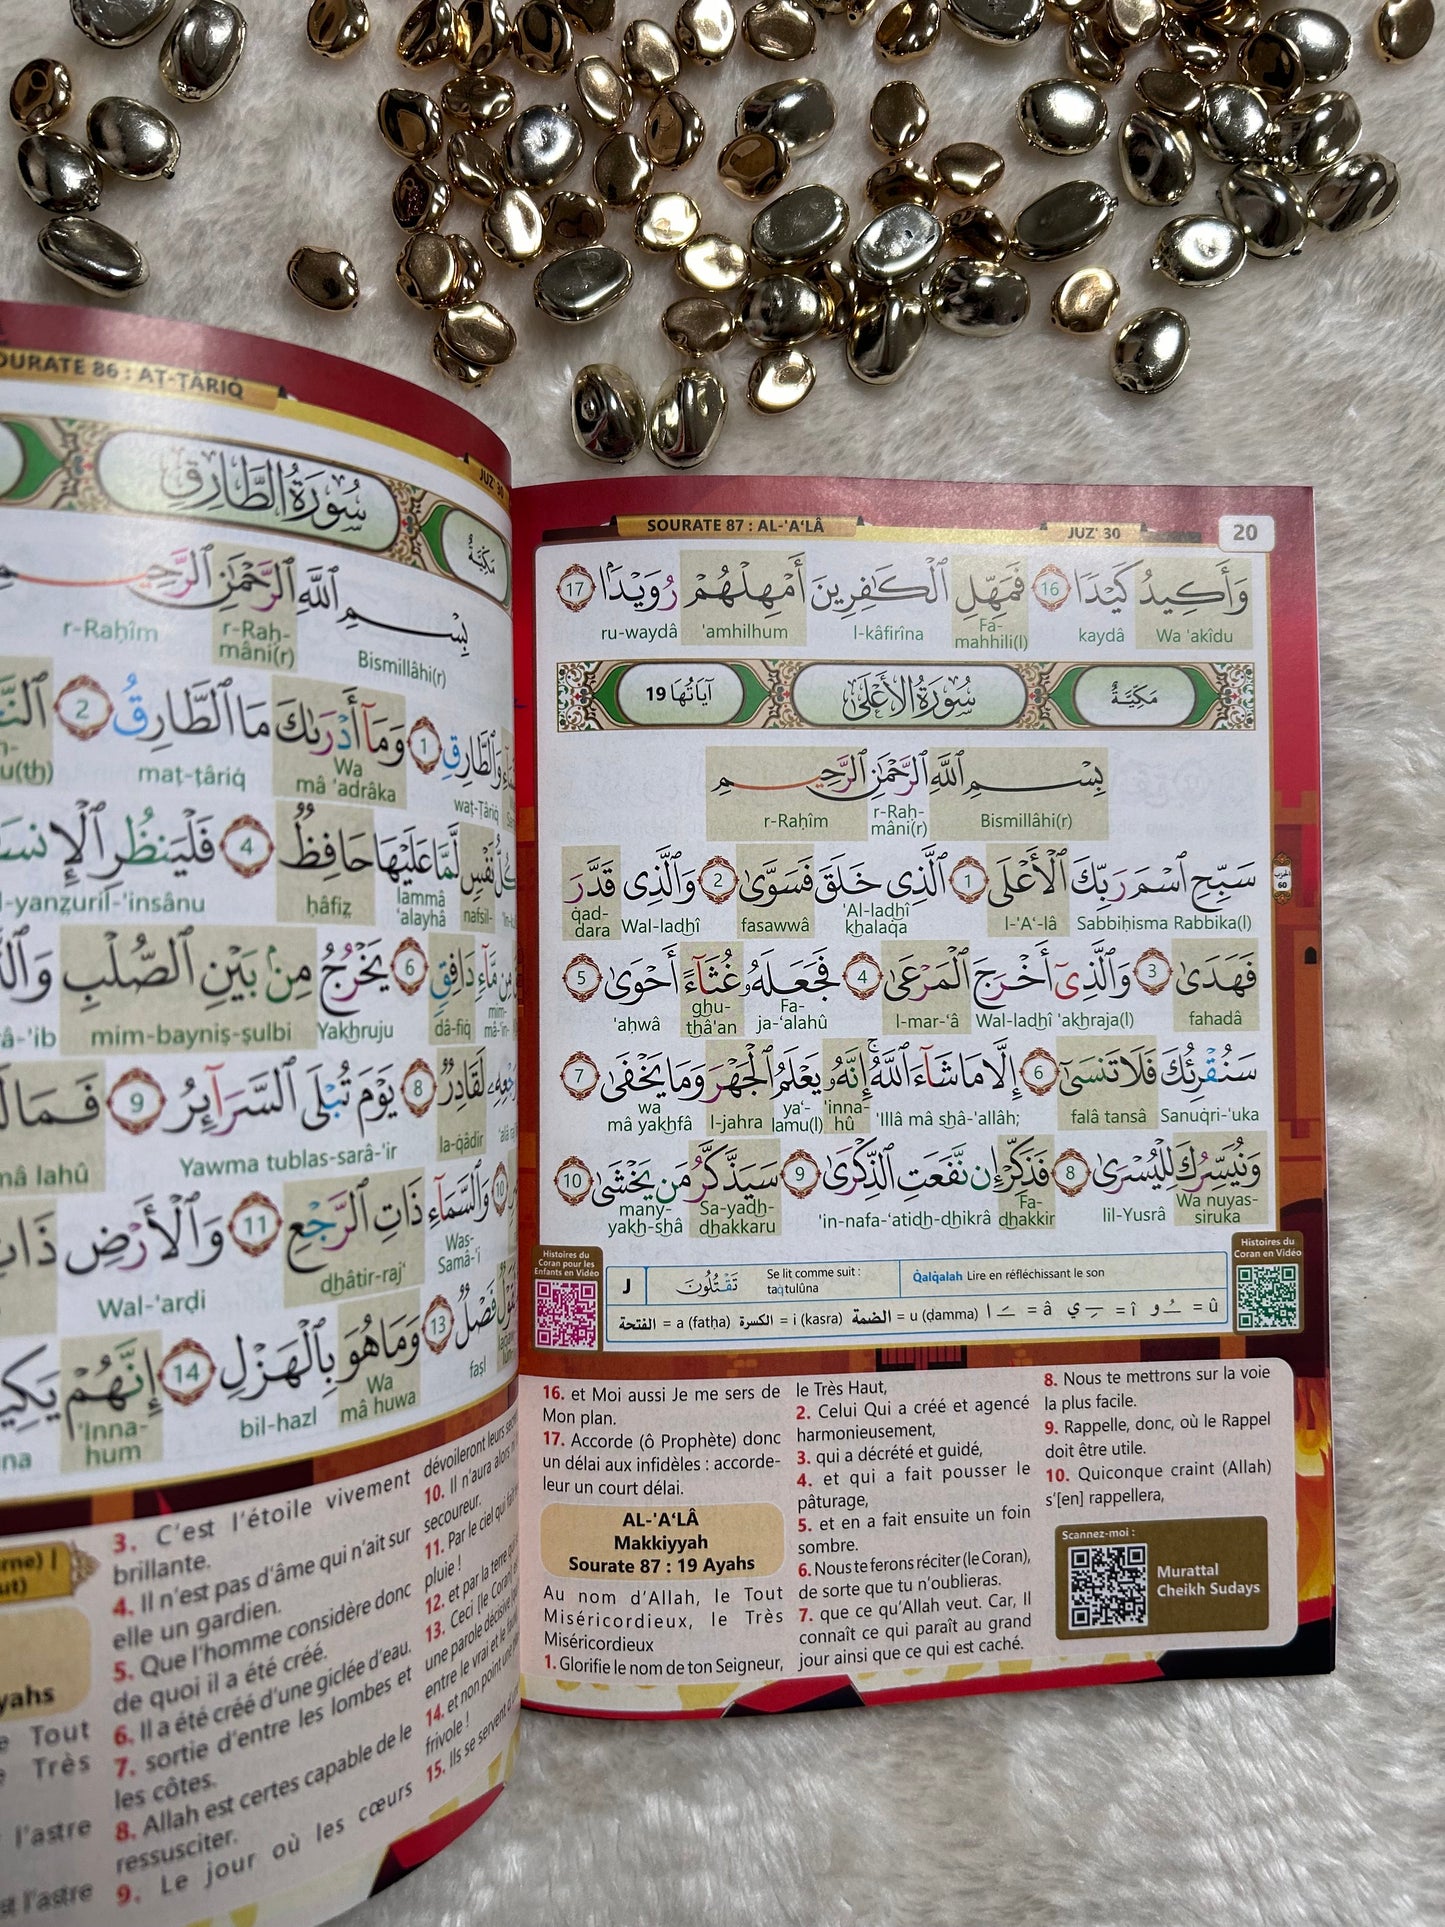 SOURATE 86 : AT-TÂRIQ
JUZ' 30
سُورَةُ الطَّارِقِ
مَكِّيَّةٌ
بِسْمِ ٱللَّهِ ٱلرَّحْمَٰنِ ٱلرَّحِيمِ
Bismillâhi(r) r-Raḥ-mâni(r) r-Raḥîm
وَٱلطَّارِقِ 1 وَمَآ أَدْرَىٰكَ مَا ٱلطَّارِقُ 2
waṭ-Ṭâriq Wa mâ 'adrâka maṭ-ṭâriq
نَفْسٍ لَّمَّا عَلَيْهَا حَافِظٌ 4 فَلْيَنظُرِ ٱلْإِنسَ
nafsil- lammâ 'alayhâ ḥâfiẓ l-yanẓuril-'insânu
مِن مَّآءٍ دَافِقٍ 6 يَخْرُجُ مِنۢ بَيْنِ ٱلصُّلْبِ
mim-mâ-'in- dâ-fiq Yakhruju mim-bayniṣ-ṣulbi
لَقَادِرٌ 8 يَوْمَ تُبْلَى ٱلسَّرَآئِرُ 9 فَمَا لَ
la-qâdir Yawma tublas-sarâ-'ir mâ lahû
10 وَٱلسَّمَآءِ ذَاتِ ٱلرَّجْعِ 11 وَٱلْأَرْضِ ذَاتِ
Was-Samâ-'i dhâtir-raj' Wal-'arḍi
فَصْلٌ 13 وَمَا هُوَ بِٱلْهَزْلِ 14 إِنَّهُمْ يَكِي
faṣl Wa mâ huwa bil-hazl 'Inna-hum
3. C'est l'étoile vivement
brillante.
4. Il n'est pas d'âme qui n'ait sur
elle un gardien.
5. Que l'homme considère donc
de quoi il a été créé.
6. Il a été créé d'une giclée d'eau.
7. sortie d'entre les lombes et
les côtes.
8. Allah est certes capable de le
ressusciter.
9. Le jour où les cœurs
dévoileront leurs
10. Il n'aura alors
secoureur.
11. Par le ciel qui
pluie !
12. et par la terre qui
13. Ceci [le Coran]
une parole décisive
entre le vrai et le
14. et non point une
frivole !
15. Ils se servent
SOURATE 87 : AL-'A‘LÂ
JUZ' 30
20
وَأَكِيدُ كَيْدًا 16 فَمَهِّلِ ٱلْكَٰفِرِينَ أَمْهِلْهُمْ رُوَيْدًۢا 17
Wa 'akîdu kaydâ Fa-mahhili(l) l-kâfirîna 'amhilhum ru-waydâ
مَكِّيَّةٌ سُورَةُ الأَعْلَى آيَاتُهَا 19
بِسْمِ ٱللَّهِ ٱلرَّحْمَٰنِ ٱلرَّحِيمِ
Bismillâhi(r) r-Raḥ-mâni(r) r-Raḥîm
سَبِّحِ ٱسْمَ رَبِّكَ ٱلْأَعْلَى 1 ٱلَّذِى خَلَقَ فَسَوَّىٰ 2 وَٱلَّذِى قَدَّرَ
Sabbiḥisma Rabbika(l) l-'A‘-lâ 'Al-ladhî khalaqa fasawwâ Wal-ladhî qad-dara
فَهَدَىٰ 3 وَٱلَّذِىٓ أَخْرَجَ ٱلْمَرْعَىٰ 4 فَجَعَلَهُۥ غُثَآءً أَحْوَىٰ 5
fahadâ Wal-ladhî 'akhraja(l) l-mar-‘â Fa-ja-‘alahû ghu-thâ'an 'aḥwâ
سَنُقْرِئُكَ فَلَا تَنسَىٰٓ 6 إِلَّا مَا شَآءَ ٱللَّهُ ۚ إِنَّهُۥ يَعْلَمُ ٱلْجَهْرَ وَمَا يَخْفَىٰ 7
Sanuqri-'uka falâ tansâ 'Illâ mâ shâ-'allâh; 'inna-hû ya‘-lamu(l) l-jahra wa mâ yakhfâ
وَنُيَسِّرُكَ لِلْيُسْرَىٰ 8 فَذَكِّرْ إِن نَّفَعَتِ ٱلذِّكْرَىٰ 9 سَيَذَّكَّرُ مَن يَخْشَىٰ 10
Wa nuyas-siruka lil-Yusrâ Fa-dhakkir 'in-nafa-‘atidh-dhikrâ Sa-yadh-dhakkaru many-yakh-shâ
الحزب 60
Histoires du
Coran pour les
Enfants en Vidéo
J تَقْتُلُونَ Se lit comme suit :
taqtulûna
Qalqalah Lire en réfléchissant le son
الفتحة = a (fatḥa) الكسرة = i (kasra) الضمة = u (ḍamma) ـَ ا = â ـِ ي = î ـُ و = û
Histoires du
Coran en Vidéo
16. et Moi aussi Je me sers de
Mon plan.
17. Accorde (ô Prophète) donc
un délai aux infidèles : accorde-
leur un court délai.
AL-'A‘LÂ
Makkiyyah
Sourate 87 : 19 Ayahs
Au nom d'Allah, le Tout
Miséricordieux, le Très
Miséricordieux
1. Glorifie le nom de ton Seigneur,
le Très Haut,
2. Celui Qui a créé et agencé
harmonieusement,
3. qui a décrété et guidé,
4. et qui a fait pousser le
pâturage,
5. et en a fait ensuite un foin
sombre.
6. Nous te ferons réciter (le Coran),
de sorte que tu n'oublieras.
7. que ce qu'Allah veut. Car, Il
connaît ce qui paraît au grand
jour ainsi que ce qui est caché.
8. Nous te mettrons sur la voie
la plus facile.
9. Rappelle, donc, où le Rappel
doit être utile.
10. Quiconque craint (Allah)
s'[en] rappellera,
Scannez-moi :
Murattal
Cheikh Sudays